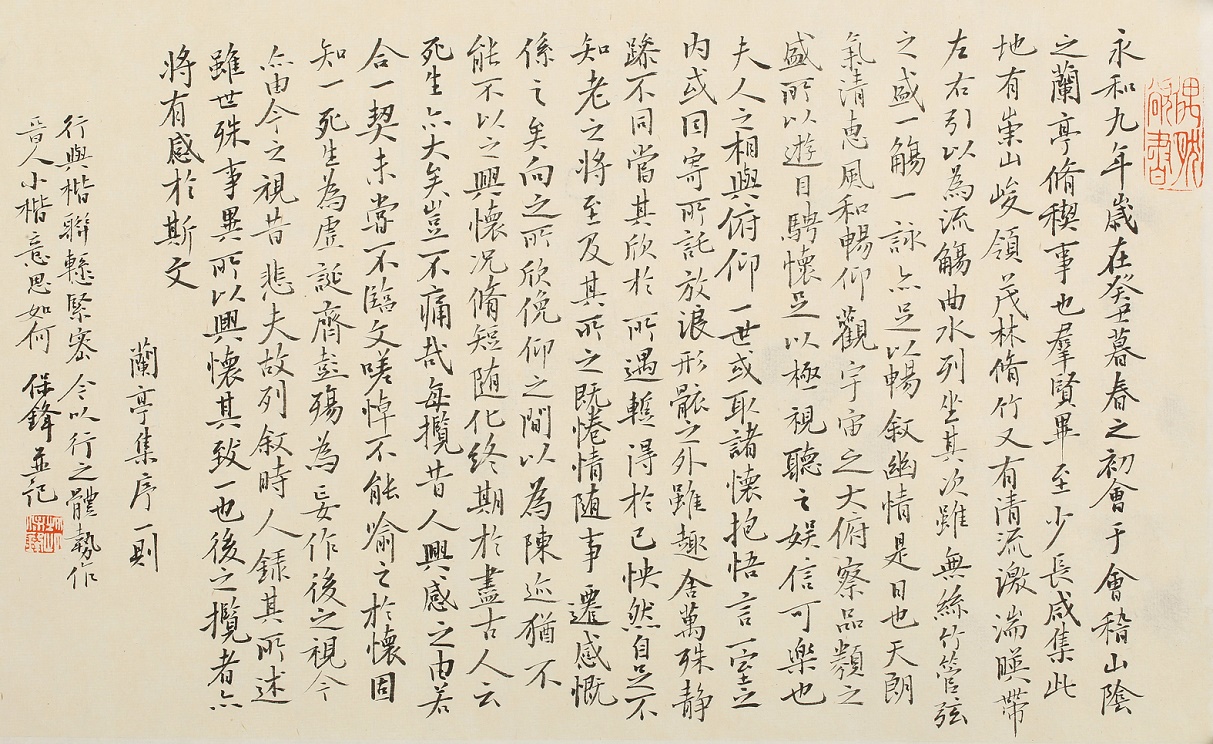 永和九年歲在癸丑暮春之初會于會稽山陰
之蘭亭脩稧事也羣賢畢至少長咸集此
地有崇山峻領茂林脩竹又有清流激湍暎帶
左右引以為流觴曲水列坐其次雖無絲竹管弦
之盛一觴一詠亦足以暢叙幽情是日也天朗
氣清惠風和暢仰觀宇宙之大俯察品類之
盛所以遊目騁懷足以極視聽之娛信可樂也
夫人之相與俯仰一世或取諸懷抱悟言一室之
內或因寄所託放浪形骸之外雖趣舍萬殊静
躁不同當其欣於所遇暫得於己怏然自足不
知老之將至及其所之既惓情随事遷感慨
係之矣向之所欣俛仰之間以為陳迹猶不
能不以之興懷況脩短随化終期於盡古人云
死生亦大矣豈不痛哉每攬昔人興感之由若
合一契未嘗不臨文嗟悼不能喻之於懷固
知一死生為虛誕齊彭殤為妄作後之視今
亦由今之視昔悲夫故列叙時人録其所述
雖世殊事異所以興懷其致一也後之攬者亦
將有感於斯文
蘭亭集序一則
行與楷聯繫緊密今以行之體勢作
晉人小楷意思如何 保鋒並記